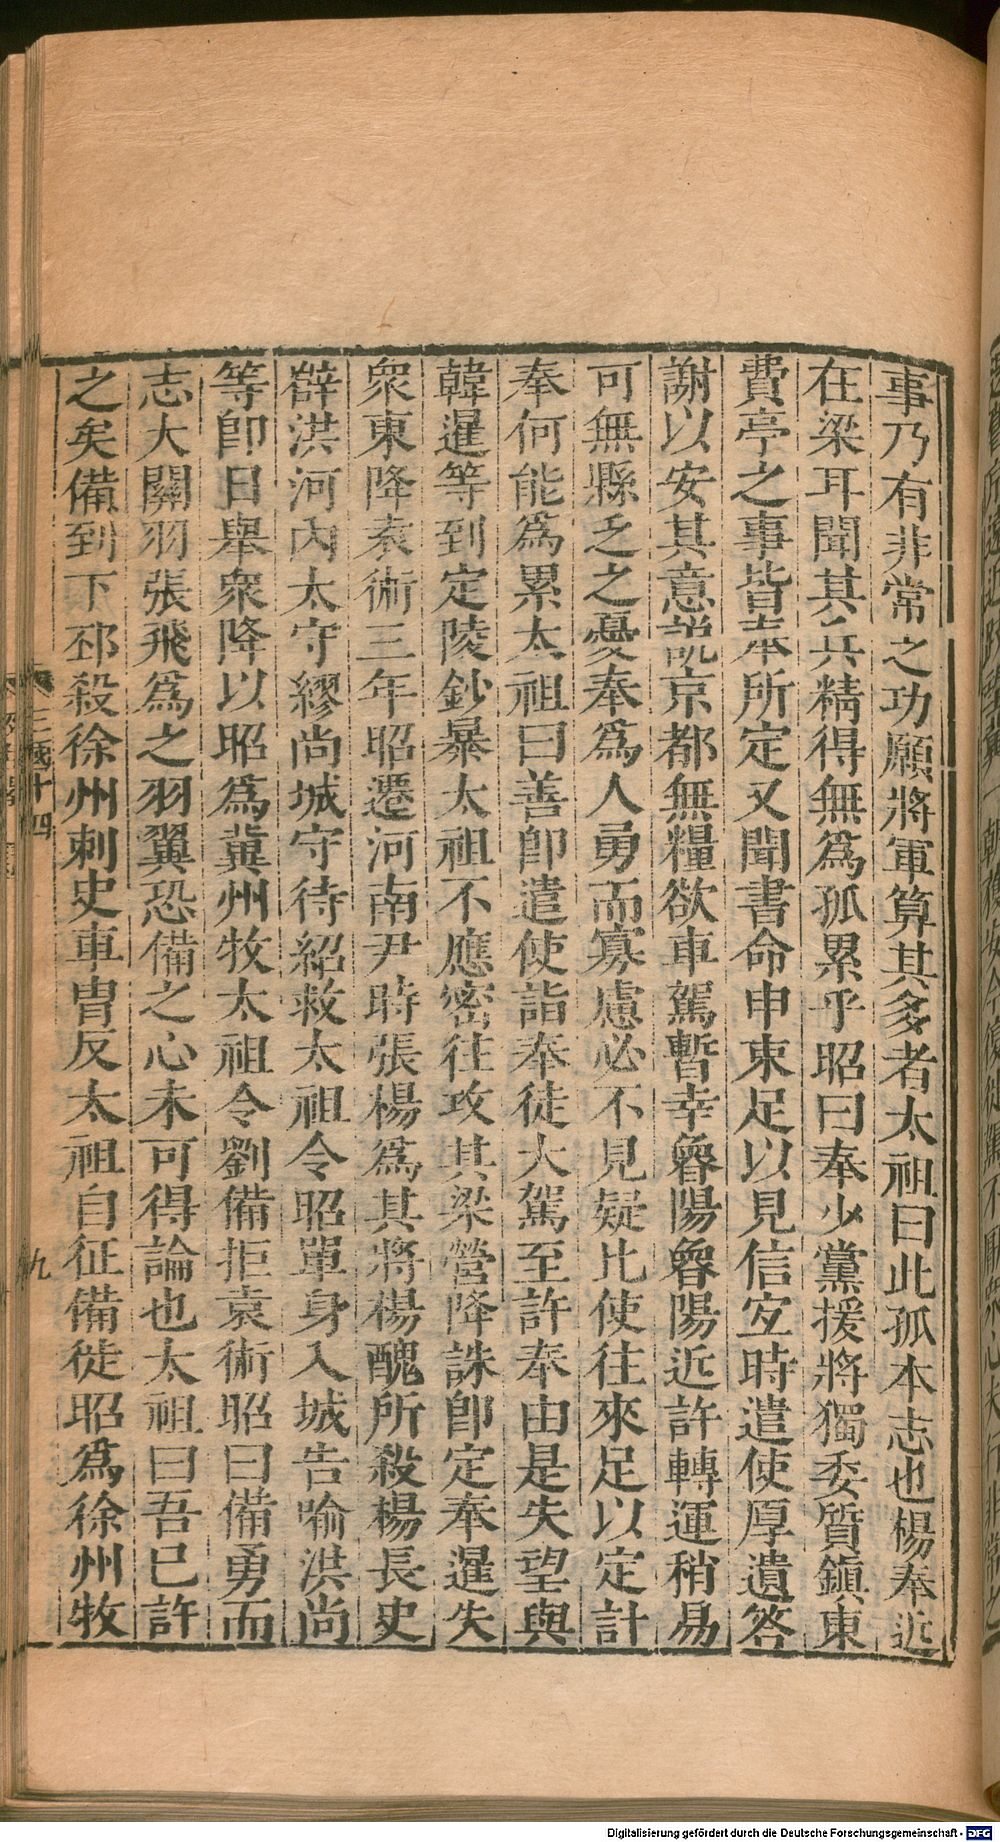 事乃有非常之功願將軍算其多者太祖曰此孤本志也楊奉近
在梁耳聞其兵精得無爲孤累乎昭曰奉少黨援將獨委質鎮東
費亭之事皆奉所定又聞書命申束足以見信宜時遣使厚遺答
謝以安其意説京都無糧欲車駕暫幸魯陽魯陽近許轉運稍易
可無縣乏之憂奉爲人勇而寡慮必不見疑比使往來足以定計
奉何能爲累太祖曰善卽遣使詣奉徒大駕至許奉由是失望與
韓暹等到定陵鈔暴太祖不應密往攻其梁營降誅卽定奉暹失
衆東降袁術三年昭遷河南尹時張楊爲其將楊醜所殺楊長史
薛洪河內太守繆尚城守待紹救太祖令昭單身入城告喻洪尚
等卽日舉衆降以昭爲冀州牧太祖令劉備拒袁術昭曰備勇而
志大關羽張飛爲之羽翼恐備之心未可得論也太祖曰吾已許
之矣備到下邳殺徐州刺史車冑反太祖自征備徙昭爲徐州牧
三國十四
九
Digitalisierung gefördert durch die Deutsche Forschungsgemeinschaft - DFG